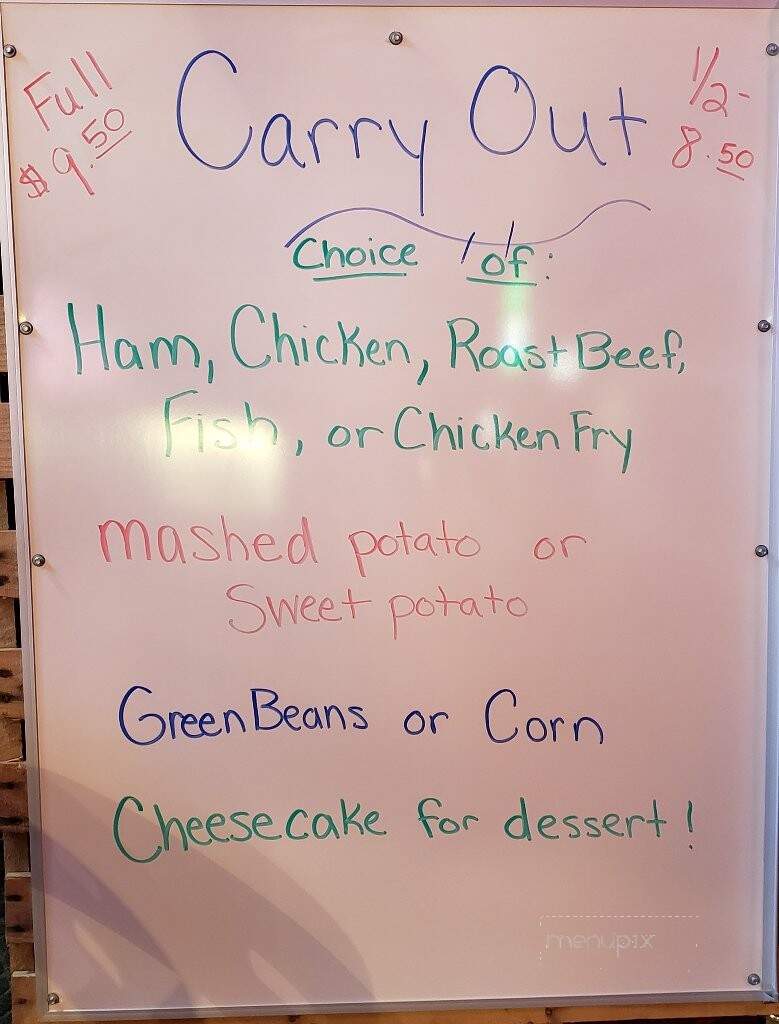 Full
$9.50
Carry Out
1/2-
8.50
Choice of:
Ham, Chicken, Roast Beef,
Fish, or Chicken Fry
mashed potato or
Sweet potato
Green Beans or Corn
Cheesecake for dessert!
menupix